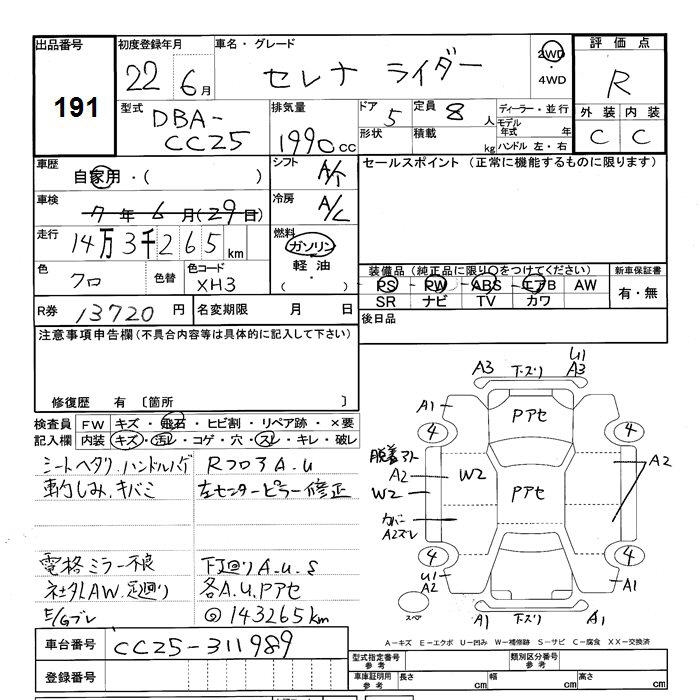 出品番号 初度登録年月 車名・グレード 評価点
191 22 6月 セレナ ライダー 2WD・4WD R
型式 排気量 ドア 定員 ディーラー・並行 外装 内装
DBA-CC25 1990cc 5 8人 モデル年式 年 C C
形状 積載 kg ハンドル 左・右
車歴 シフト セールスポイント (正常に機能するものに限ります)
自家用・( ) A/T
車検 冷房
7年6月(29日) A/C
走行 燃料
14万3千265km ガソリン・軽油・( )
色 色替 色コード 装備品 (純正品に限り○をつけてください) 新車保証書
クロ XH3 PS PW ABS エアB AW 有・無
SR ナビ TV カワ
R券 13720円 名変期限 月 日 後日品
注意事項申告欄 (不具合内容等は具体的に記入して下さい)
修復歴 有 〔箇所 〕
検査員 FW キズ・飛石・ヒビ割・リペア跡・×要
記入欄 内装 キズ・汚レ・コゲ・穴・スレ・キレ・破レ
シートヘタリ ハンドルハゲ RフロアA.U
車内しみ.キバミ 左センターピラー修正
電格ミラー不良 下廻りA.U.S
社外AW.足廻り 各A.U.Pアセ
E/Gブレ @143265km
車台番号 CC25-311989
登録番号
A3 下ズリ U1
A3
A1 Pアセ
4 4
脱着アト
A2 W2 A2
W2 Pアセ
カバー
A2ズレ
4 4
U1
A2 A1
スペア A1 下ズリ A1
A-キズ E-エクボ U-凹み W-補修跡 S-サビ C-腐食 XX-交換済
型式指定番号 参考 類別区分番号 参考
車庫証明用 参考 長さ cm 幅 cm 高さ cm